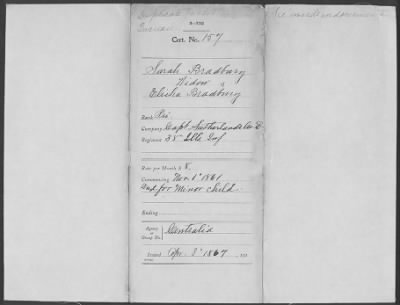 Increase
3-532
Cert. No. 157
Sarah Bradbury
Widow
Elisha Bradbury
Rank Pri.
Company Capt Sutherlands Co
Regiment 35 Ills. Inf
Rate per Month $ 8.
Commencing Nov. 1st 1861
and for Minor Child
Ending
Agency or Group No. Centralia
Issued Apr. 2d 1867